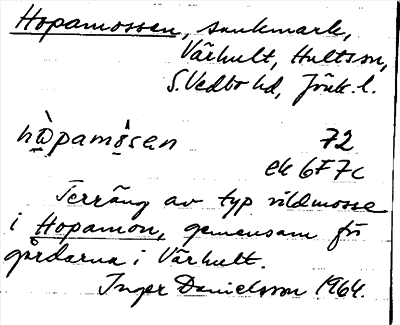 Hopamossen, sankmark,
Värhult, Hultsjön,
S. Vedbo hd, Jönk. l.
hò̱pamô̱sen 72
ek 6F 7c
Terräng av typ vildmosse
i Hopamon, gemensam för
gårdarna i Värhult.
Inger Danielsson 1964.